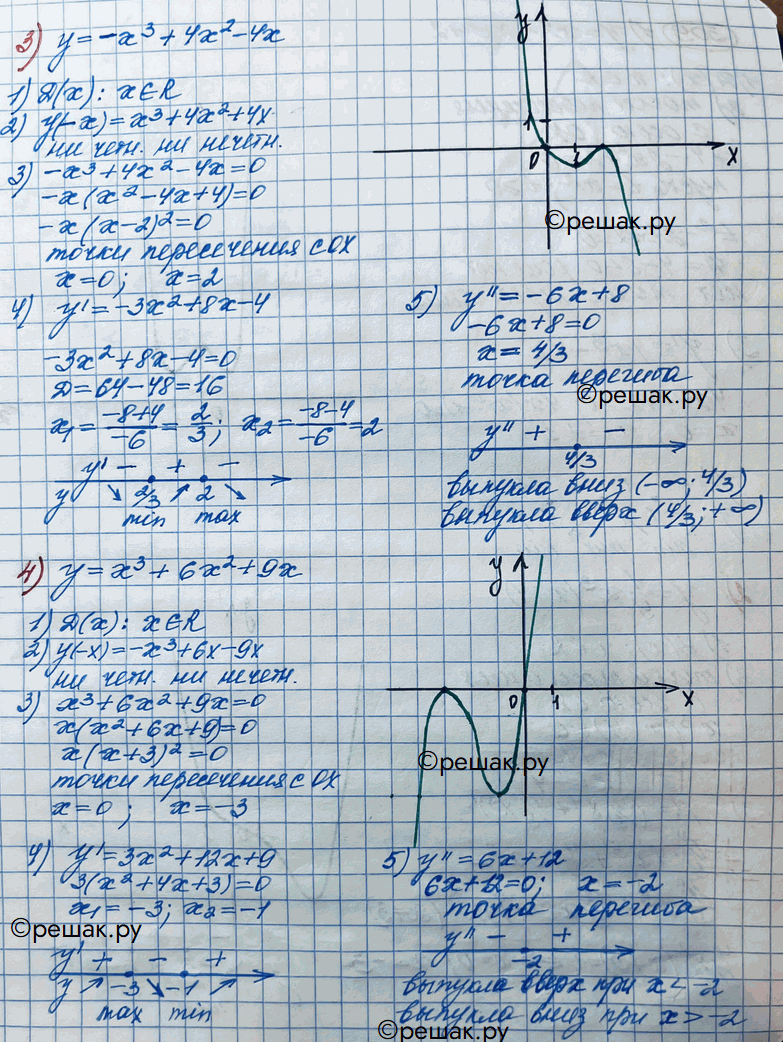 3) y = -x³ + 4x² - 4x
1) D(x): x∈R
2) y(-x) = x³ + 4x² + 4x
ни четн. ни нечетн.
3) -x³ + 4x² - 4x = 0
-x(x² - 4x + 4) = 0
-x(x - 2)² = 0
точки пересечения с ОХ
x = 0; x = 2
4) y' = -3x² + 8x - 4
-3x² + 8x - 4 = 0
D = 64 - 48 = 16
x₁ = (-8+4)/-6 = 2/3; x₂ = (-8-4)/-6 = 2
y' - + -
y ↘ 2/3 ↗ 2 ↘
min max
y
1
0 1 x
©решак.ру
5) y'' = -6x + 8
-6x + 8 = 0
x = 4/3
точка перегиба
©решак.ру
y'' + -
4/3
выпукла вниз (-∞; 4/3)
выпукла вверх (4/3; +∞)
4) y = x³ + 6x² + 9x
1) D(x): x∈R
2) y(-x) = -x³ + 6x - 9x
ни четн. ни нечетн.
3) x³ + 6x² + 9x = 0
x(x² + 6x + 9) = 0
x(x + 3)² = 0
точки пересечения с ОХ
x = 0; x = -3
y
0 1 x
©решак.ру
4) y' = 3x² + 12x + 9
3(x² + 4x + 3) = 0
x₁ = -3; x₂ = -1
©решак.ру
y' + - +
y ↗ -3 ↘ -1 ↗
max min
5) y'' = 6x + 12
6x + 12 = 0; x = -2
точка перегиба
y'' - +
-2
выпукла вверх при x < -2
выпукла вниз при x > -2
©решак.ру